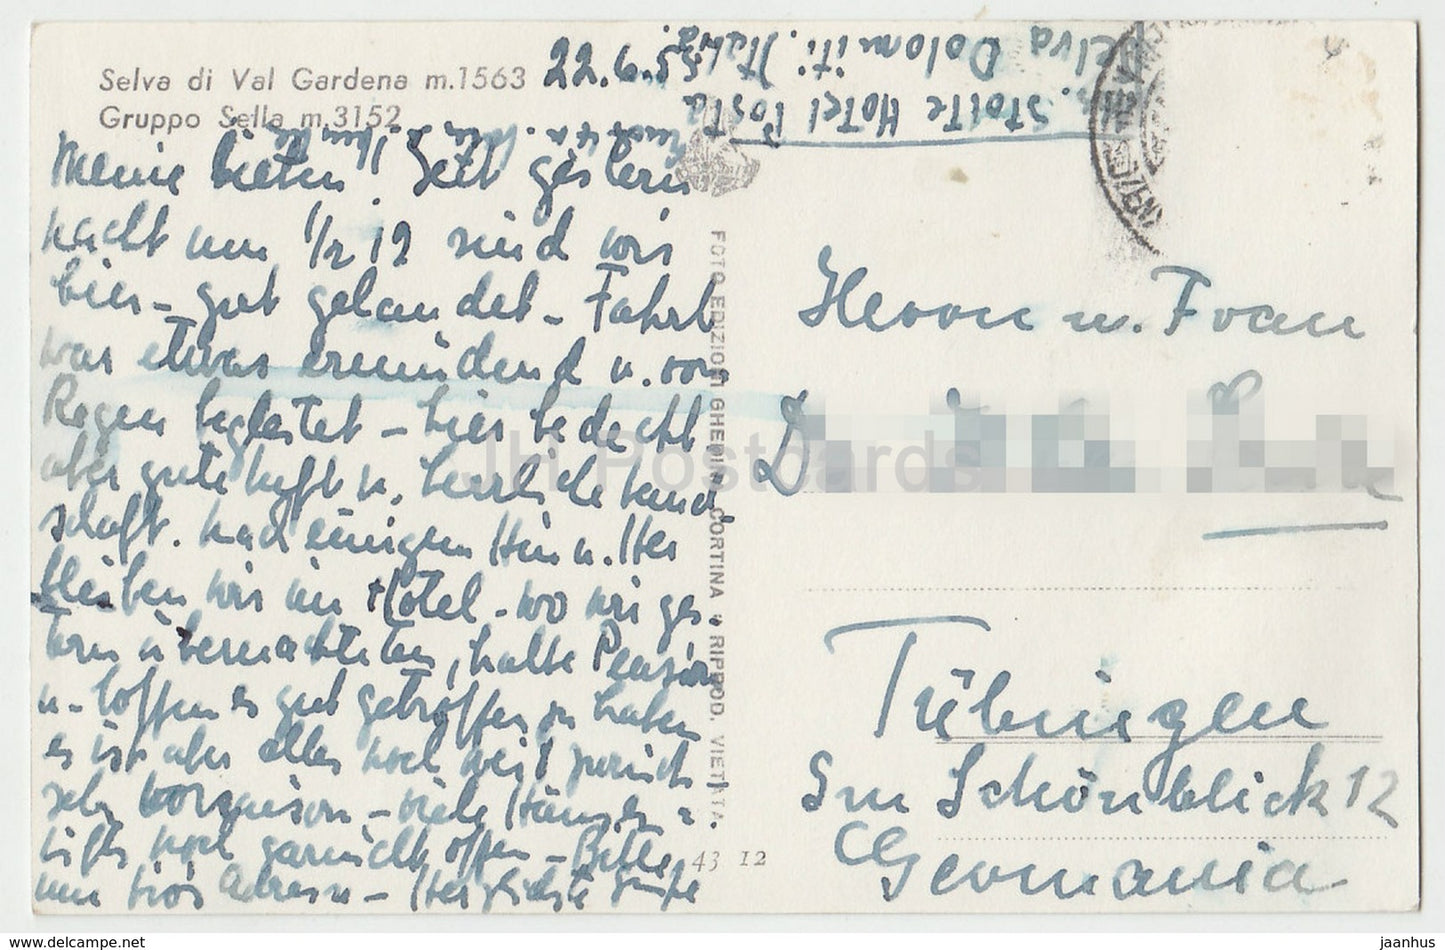 Selva di Val Gardena m.1563
Gruppo Sella m.3152
22.6.
Stolte Hotel Posta
Selva Dolomiti. Italia.
Meine lieben! Seit gestern
nacht um 1/2 12 sind wir
hier – gut gelandet – Fahrt
war etwas ermüdend u. von
Regen begleitet – hier bedeckt
aber gute Luft u. herrliche Land-
schaft. Nach einigem Hin u. Her
bleiben wir im Hotel – wo wir ges
tern übernachteten, halbe Pension
u. hoffen es gut getroffen zu haben
es ist aber alles noch weit zurück
sehr Vorsaison – viele Häuser u.
Lifts noch garnicht offen – Bitte
um Adresse – Herzlichste Grüße
FOTO EDIZIONI GHEDINA CORTINA • RIPROD. VIETATA
43 12
Herrn u. Frau
D
Tübingen
Im Schönblick 12
Germania
JH Postcards
www.delcampe.net
jaanhus